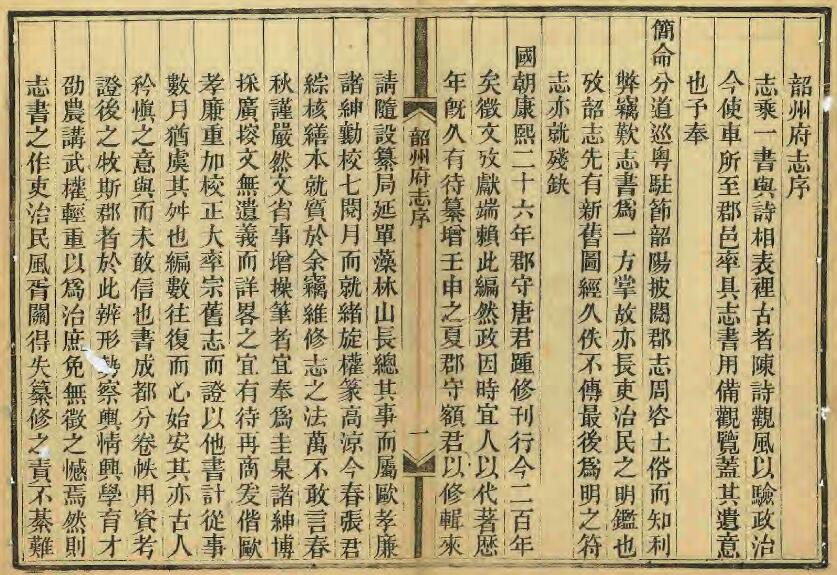 韶州府志序
志乘一書與詩相表裡古者陳詩觀風以驗政治
今使車所至郡邑率具志書用備觀覽蓋其遺意
也予奉
簡命分道巡粵駐節韶陽披閱郡志周咨土俗而知利
弊竊歎志書爲一方掌故亦長吏治民之明鑑也
攷韶志先有新舊圖經久佚不傳最後爲明之符
志亦就殘缺
國朝康熙二十六年郡守唐君踵修刊行今二百年
矣徵文攷獻端賴此編然政因時宜人以代著歷
年旣久有待纂增壬申之夏郡守額君以修輯來
韶州府志序
一
請隨設纂局延單藻林山長總其事而屬歐孝廉
諸紳勷校七閱月而就緒旋權篆高涼今春張君
綜核繕本就質於余竊維修志之法萬不敢言春
秋謹嚴然文省事增操筆者宜奉爲圭臬諸紳博
採廣搜文無遺義而詳畧之宜有待再商爰偕歐
孝廉重加校正大率宗舊志而證以他書計從事
數月猶虞其舛也編數往復而心始安其亦古人
矜愼之意與而未敢信也書成都分卷帙用資考
證後之牧斯郡者於此辨形勢察輿情興學育才
劭農講武權輕重以爲治庶免無徵之憾焉然則
志書之作吏治民風胥關得失纂修之責不綦難